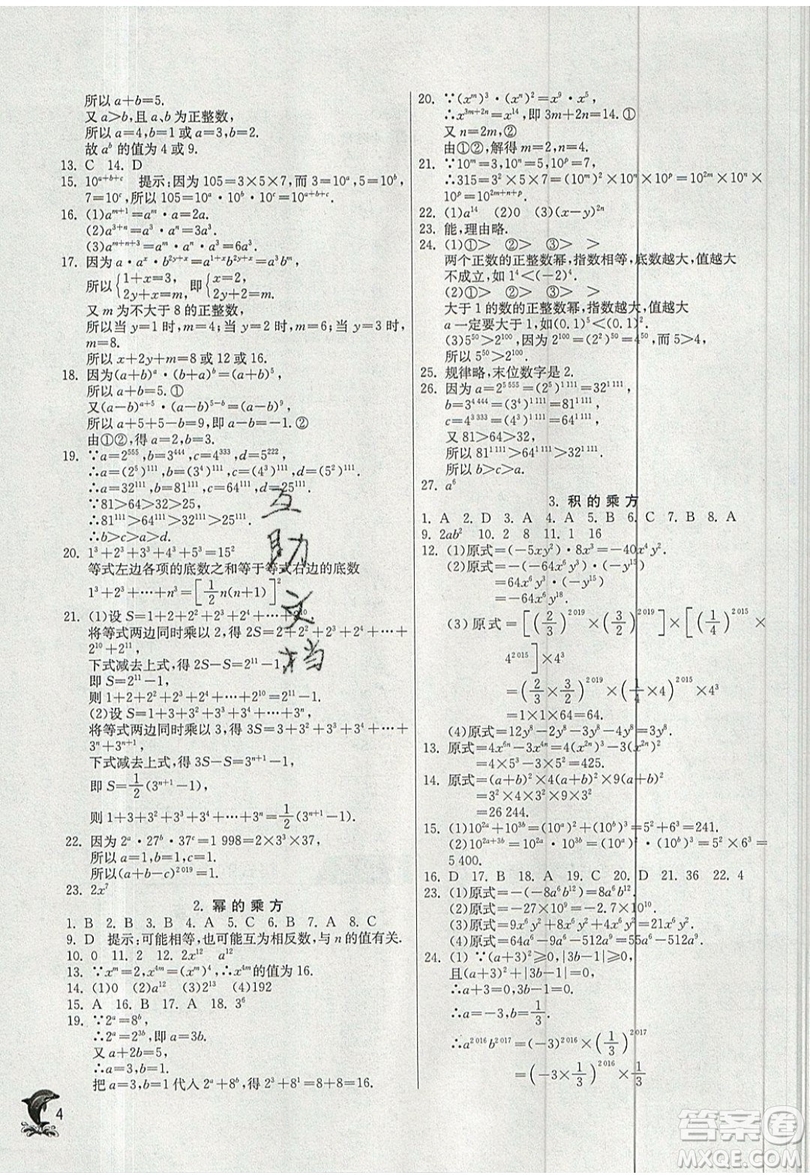 所以a+b=5.
又a>b,且a、b为正整数,
所以a=4,b=1或a=3,b=2.
故a^b的值为4或9.
13. C 14. D
15. 10^{a+b+c} 提示:因为105=3×5×7,而3=10^a,5=10^b,
7=10^c,所以105=10^a·10^b·10^c=10^{a+b+c}.
16. (1)a^{m+1}=a^m·a=2a.
(2)a^{3+n}=a^3·a^n=3a^3.
(3)a^{m+n+3}=a^m·a^n·a^3=6a^3.
17. 因为a·a^x·b^{2y+x}=a^{1+x}b^{2y+x}=a^3b^m,
所以{1+x=3, 2y+x=m, 即{x=2, 2y+2=m.
又m为不大于8的正整数,
所以当y=1时,m=4;当y=2时,m=6;当y=3时,
m=8.
所以x+2y=m=8或12或16.
18. 因为(a+b)^a·(b+a)^b=(a+b)^5,
所以a+b=5.①
又(a-b)^{a+5}·(a-b)^{5-b}=(a-b)^9,
所以a+5+5-b=9,即a-b=-1.②
由①②,得a=2,b=3.
19. ∵a=2^{555},b=3^{444},c=4^{333},d=5^{222},
∴a=(2^5)^{111},b=(3^4)^{111},c=(4^3)^{111},d=(5^2)^{111}.
∴a=32^{111},b=81^{111},c=64^{111},d=25^{111}.
∵81>64>32>25,
∴81^{111}>64^{111}>32^{111}>25^{111}.
∴b>c>a>d.
20. 1^3+2^3+3^3+4^3+5^3=15^2
等式左边各项的底数之和等于等式右边的底数
1^3+2^3+…+n^3=[1/2 n(n+1)]^2
21. (1)设S=1+2+2^2+2^3+2^4+…+2^{10},
将等式两边同时乘以2,得2S=2+2^2+2^3+2^4+…+
2^{10}+2^{11},
下式减去上式,得2S-S=2^{11}-1,
即S=2^{11}-1,
则1+2+2^2+2^3+2^4+…+2^{10}=2^{11}-1.
(2)设S=1+3+3^2+3^3+3^4+…+3^n,
将等式两边同时乘以3,得3S=3+3^2+3^3+3^4+…+
3^n+3^{n+1},
下式减去上式,得3S-S=3^{n+1}-1,
即S=1/2(3^{n+1}-1),
则1+3+3^2+3^3+3^4+…+3^n=1/2(3^{n+1}-1).
22. 因为2^a·3^b·37^c=1 998=2×3^3×37,
所以a=1,b=3,c=1.
所以(a-b+c)^{2 019}=-1.
23. 2x^7
2. 幂的乘方
1. B 2. B 3. D 4. B 5. A 6. D 7. B 8. C
9. D 提示:可能相等,也可能互为相反数,与n的值有关.
10. 0 11. 2 12. 2x^{12} a^{12}
13. ∵x^m=2,x^{4m}=(x^m)^4,∴x^{4m}的值为16.
14. (1)0 (2)a^{12} (3)2^{13} (4)192
15. A 16. B 17. A 18. 3^6
19. ∵2^a=8^b,
∴2^a=2^{3b},即a=3b.
又a+2b=5,
∴a=3,b=1.
把a=3,b=1代入2^a+8^b,得2^a+8^b=8+8=16.
互助文档
4
20. ∵(x^m)^3·(x^n)^2=x^9·x^5,
∴x^{3m+2n}=x^{14},即3m+2n=14.①
又n=2m,②
由①②,解得m=2,n=4.
21. ∵10^m=3,10^n=5,10^p=7,
∴315=3^2×5×7=(10^m)^2×10^n×10^p=10^{2m}×10^n×
10^p=10^{2m+n+p}.
22. (1)a^{14} (2)0 (3)(x-y)^{2n}
23. 能,理由略.
24. (1)①> ②> ③> >
两个正数的正整数幂,指数相等,底数越大,值越大
不成立,如1^4<(-2)^4.
(2)①> ②> ③> >
大于1的数的正整数幂,指数越大,值越大
a一定要大于1,如(0.1)^5<(0.1)^2.
(3)5^{50}>2^{100}.因为2^{100}=(2^2)^{50}=4^{50}.而5>4,
所以5^{50}>2^{100}.
25. 规律略,末位数字是2.
26. 因为a=2^{5 555}=(2^5)^{1 111}=32^{1 111},
b=3^{4 444}=(3^4)^{1 111}=81^{1 111},
c=4^{3 333}=(4^3)^{1 111}=64^{1 111},
又81>64>32,
所以81^{1 111}>64^{1 111}>32^{1 111}.
所以b>c>a.
27. a^6
3. 积的乘方
1. A 2. D 3. A 4. A 5. B 6. C 7. B 8. A
9. 2ab^2 10. 2 8 11. 1 16
12. (1)原式=(-5xy^2)·8x^3=-40x^4y^2.
(2)原式=(-64x^6y^3)·(-y^{15})
=64x^6y^3·(-y^{15})
=-64x^6y^{18}.
(3)原式=[(2/3)^{2 019}×(3/2)^{2 019}]×[(1/4)^{2 015}×
4^{2 015}]×4^3
=(2/3×3/2)^{2 019}×(1/4×4)^{2 015}×4^3
=1×1×64=64.
(4)原式=12y^8-2y^8-3y^8=7y^8.
13. 原式=4x^{6n}-3x^{4n}=4(x^{2n})^3-3(x^{2n})^2
=4×5^3-3×5^2=425.
14. 原式=(a+b)^2×4(a+b)^2×9(a+b)^2
=3^2×4×3^2×9×3^2
=26 244.
15. (1)10^{2a}+10^{3b}=(10^a)^2+(10^b)^3=5^2+6^3=241.
(2)10^{2a+3b}=10^{2a}·10^{3b}=(10^a)^2·(10^b)^3=5^2×6^3=
5 400.
16. D 17. B 18. A 19. B 20. D 21. 36 22. 4
23. (1)原式=a^6b^{12}+(-8a^6b^{12})=-7a^6b^{12}.
(2)原式=-27×10^{-9}=-2.7×10^{-8}.
(3)原式=9x^6y^2+8x^6y^2·(-x)=9x^6y^2-8x^7y^2.
(4)原式=64a^6-9a^6-512a^9=55a^6-512a^9.
24. ∵(a+3)^2≥0,|3b-1|≥0,
且(a+3)^2+|3b-1|=0,
∴a=-3,b=1/3.
∴a^{2 016}b^{2 017}=(-3)^{2 016}×(1/3)^{2 017}
=(-3×1/3)^{2 016}×1/3
答案圈
MXQE.COM